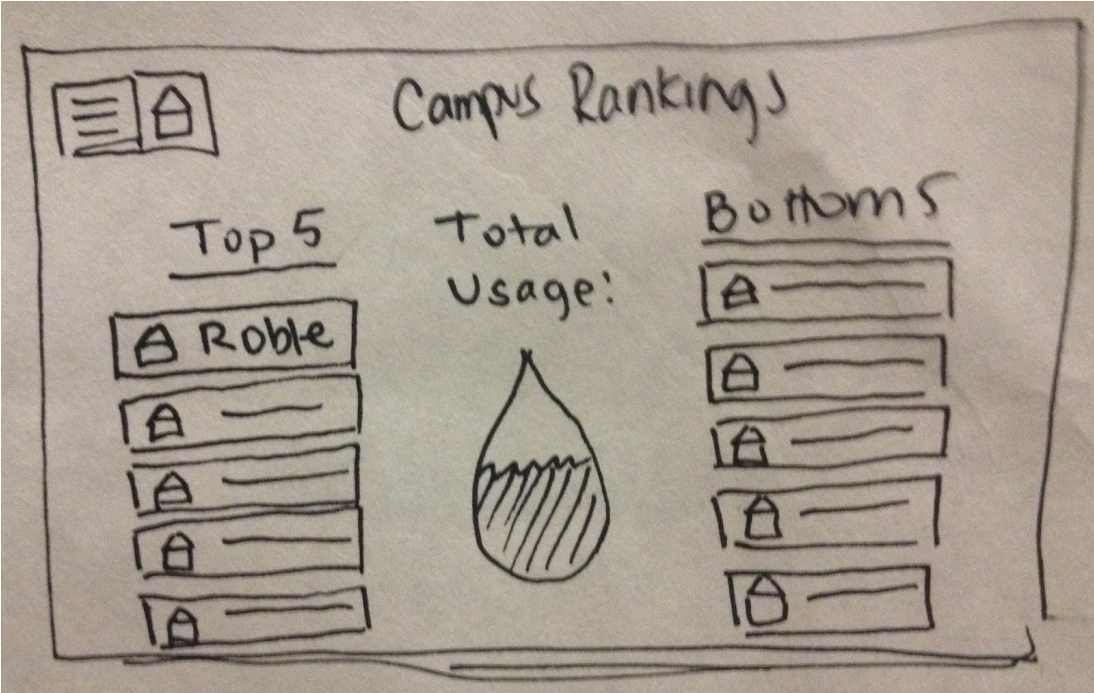 Campus Rankings
Top 5
Roble
Total
Usage:
Bottom 5